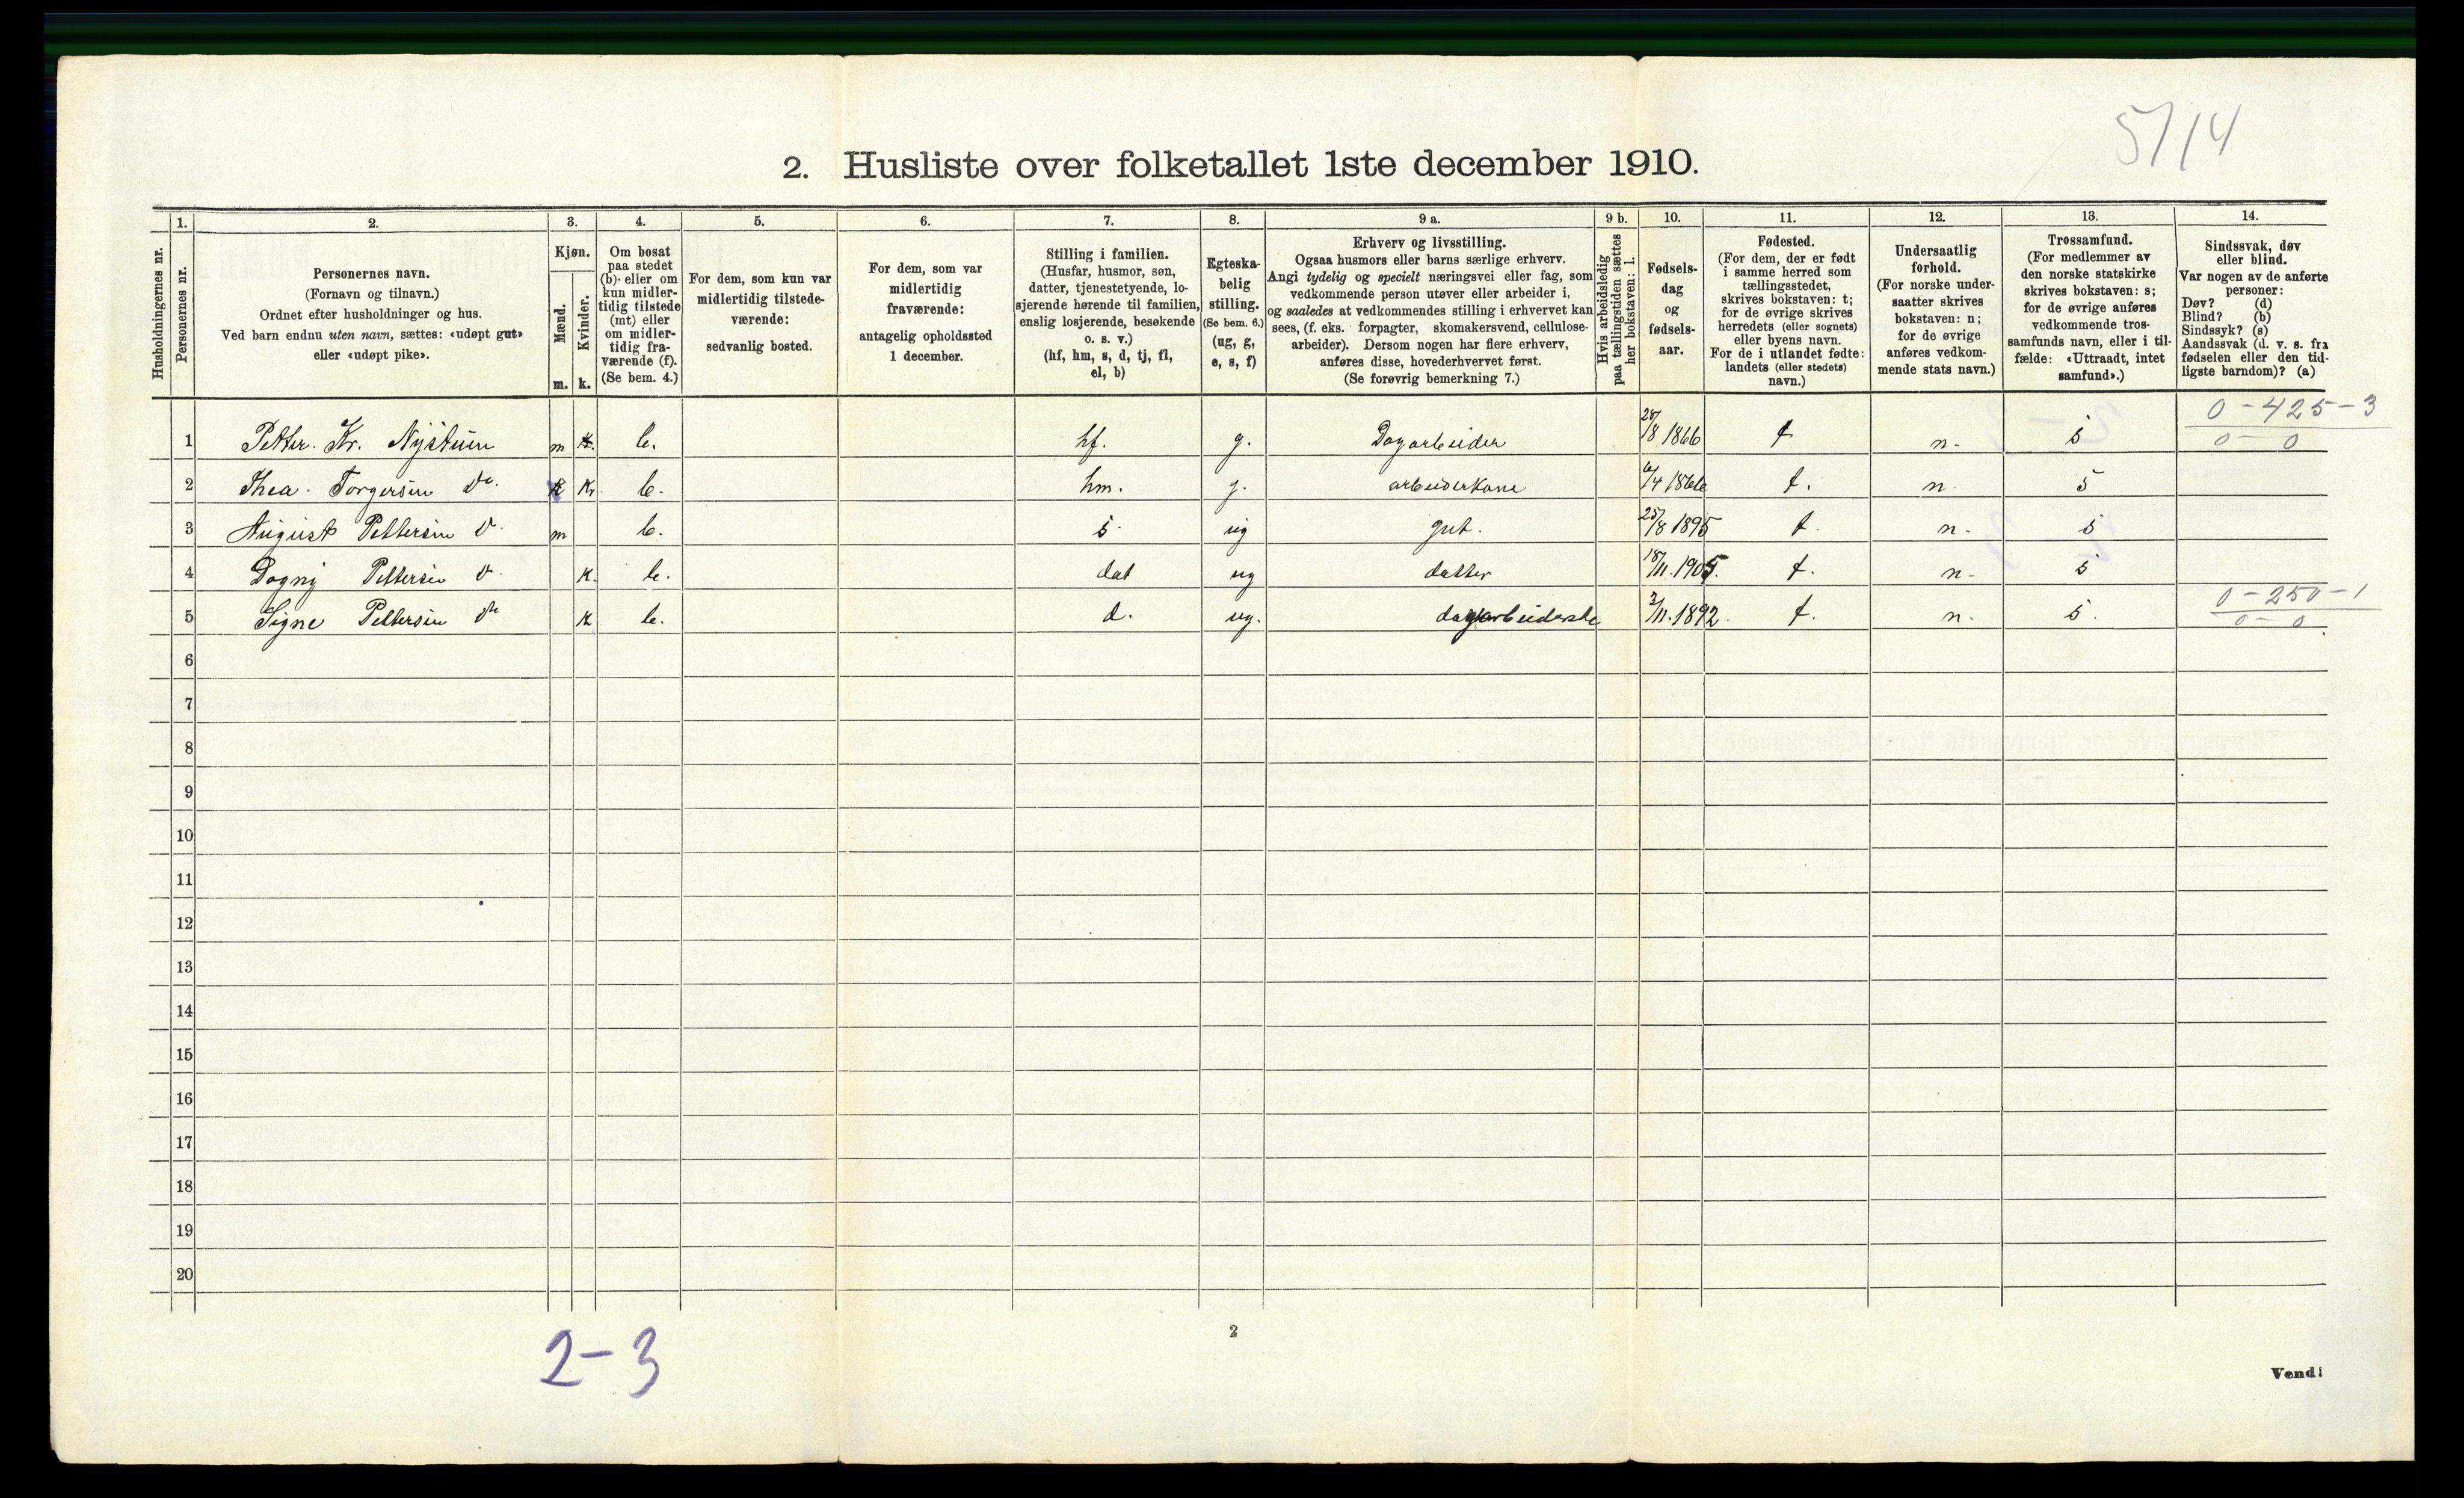 5/14
2. Husliste over folketallet 1ste december 1910.
Husholdningernes nr.
1. Personernes nr.
2. Personernes navn.
(Fornavn og tilnavn.)
Ordnet efter husholdninger og hus.
Ved barn endnu uten navn, sættes: «udøpt gut»
eller «udøpt pike».
3. Kjøn.
Mænd. m.
Kvinder. k.
4. Om bosat
paa stedet
(b) eller om
kun midler-
tidig tilstede
(mt) eller
om midler-
tidig fra-
værende (f).
(Se bem. 4.)
5. For dem, som kun var
midlertidig tilstede-
værende:
sedvanlig bosted.
6. For dem, som var
midlertidig
fraværende:
antagelig opholdssted
1 december.
7. Stilling i familien.
(Husfar, husmor, søn,
datter, tjenestetyende, lo-
sjerende hørende til familien,
enslig losjerende, besøkende
o. s. v.)
(hf, hm, s, d, tj, fl,
el, b)
8. Egteska-
belig
stilling.
(Se bem. 6.)
(ug, g,
e, s, f)
9 a. Erhverv og livsstilling.
Ogsaa husmors eller barns særlige erhverv.
Angi tydelig og specielt næringsvei eller fag, som
vedkommende person utøver eller arbeider i,
og saaledes at vedkommendes stilling i erhvervet kan
sees, (f. eks. forpagter, skomakersvend, cellulose-
arbeider). Dersom nogen har flere erhverv,
anføres disse, hovederhvervet først.
(Se forøvrig bemerkning 7.)
9 b. Hvis arbeidsledig
paa tællingstiden sættes
her bokstaven: l.
10. Fødsels-
dag
og
fødsels-
aar.
11. Fødested.
(For dem, der er født
i samme herred som
tællingsstedet,
skrives bokstaven: t;
for de øvrige skrives
herredets (eller sognets)
eller byens navn.
For de i utlandet fødte:
landets (eller stedets)
navn.)
12. Undersaatlig
forhold.
(For norske under-
saatter skrives
bokstaven: n;
for de øvrige
anføres vedkom-
mende stats navn.)
13. Trossamfund.
(For medlemmer av
den norske statskirke
skrives bokstaven: s;
for de øvrige anføres
vedkommende tros-
samfunds navn, eller i til-
fælde: «Uttraadt, intet
samfund».)
14. Sindssvak, døv
eller blind.
Var nogen av de anførte
personer:
Døv? (d)
Blind? (b)
Sindssyk? (s)
Aandssvak (d. v. s. fra
fødselen eller den tid-
ligste barndom)? (a)
0-425-3
1 Petter. Kr. Nystuen m k. b. hf. g. Dagarbeider 28/8 1866 t n. s 0-0
2 Thea. Torgersen do. k b. hm. g. arbeiderkone 6/4 1866 t. n s
3 August Pettersen d. m b. s. ug gut. 25/8 1895 t. n. s
4 Dagny Pettersen d. k. b. dat ug datter 18/11.1905. t. n. s
5 Signe Pettersen do k b. d. ug. dagarbeiderske 3/11.1892. t. n. s. 0-250-1
0-0
6
7
8
9
10
11
12
13
14
15
16
17
18
19
20
2-3
2
Vend!